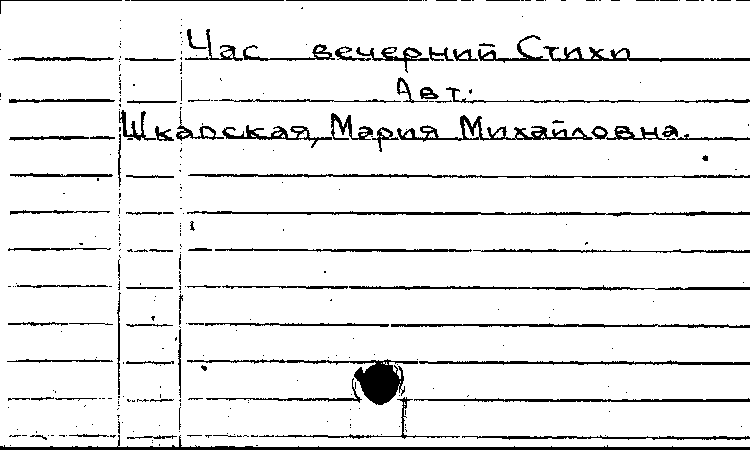 Час вечерний Стихи
Авт.
Шкапская, Мария Михайловна.